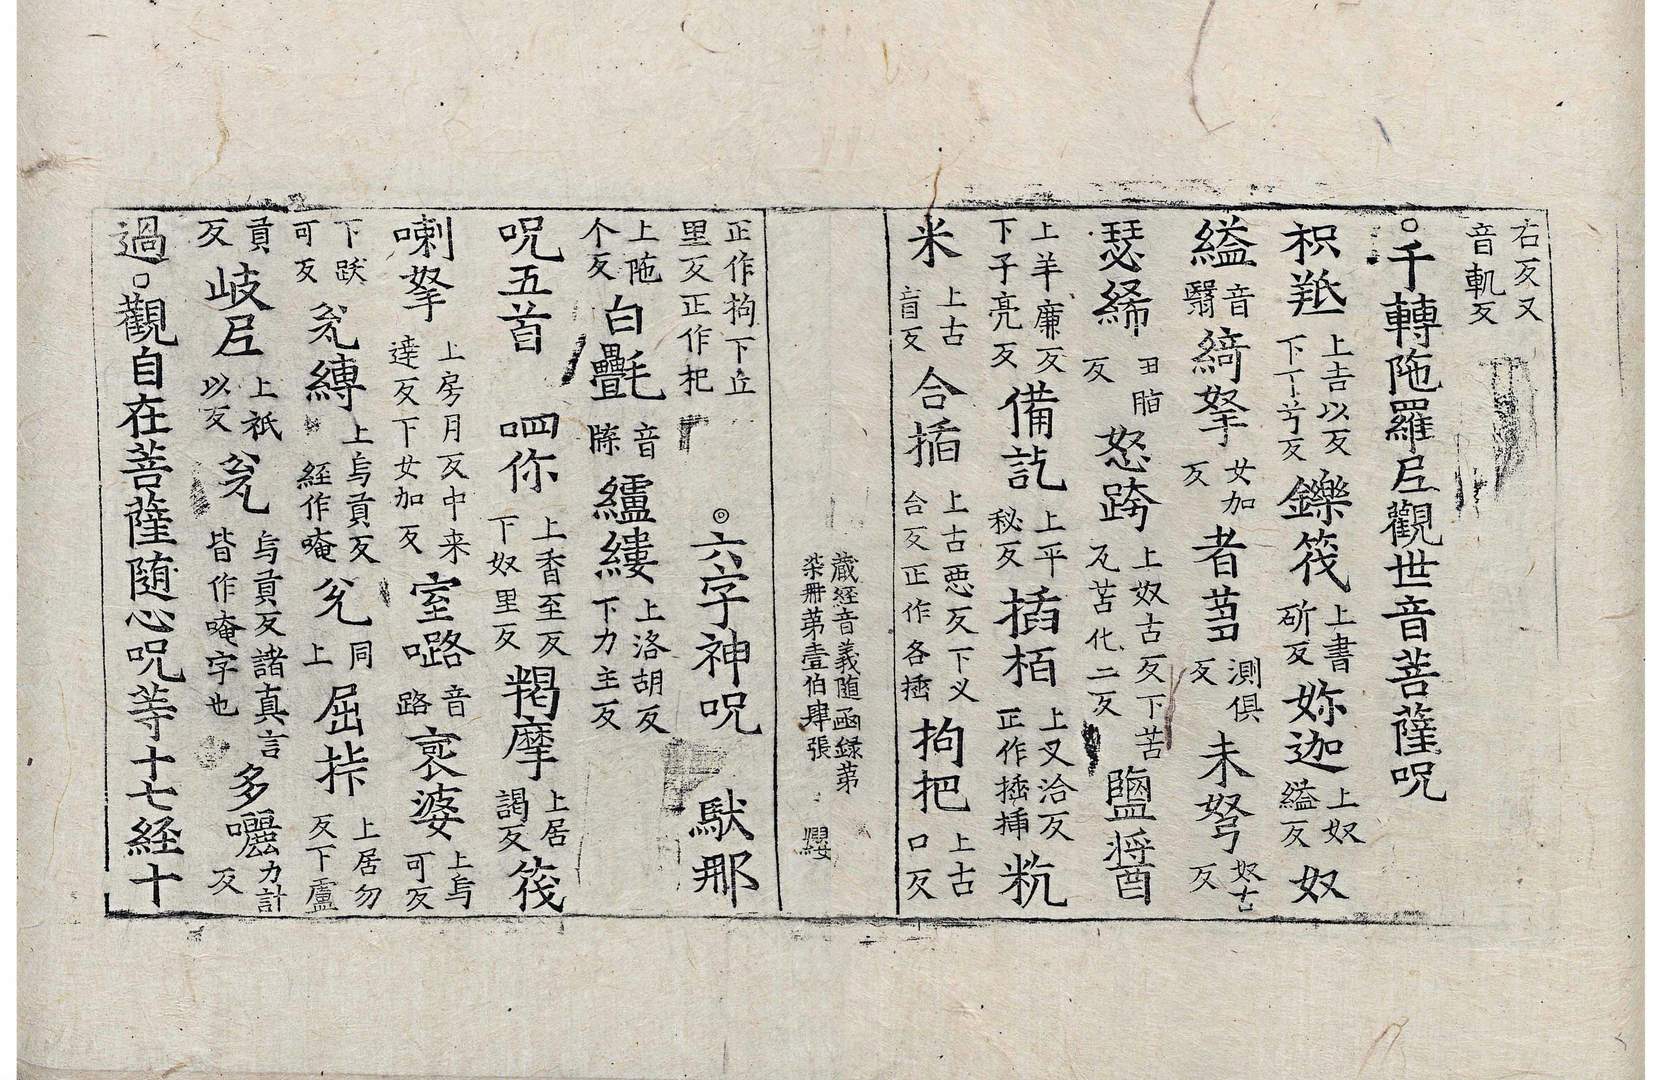 右反又音軌反
○千轉陁羅尼觀世音菩薩呪
枳羝上吉以反下丁兮反鑠筏上書斫反妳迦上奴縊反奴
縊音翳綺拏女加反者蒭測俱反未弩奴古反
瑟絺丑脂反怒跨上奴古反下苦瓦苦化二反鹽酱
上羊廉反下子亮反備訖上平秘反插栢上叉洽反正作插揷粇
米上古盲反合插上古合反正作各插拘把上古口反
藏經音義隨函録第
柒冊苐壹伯肆張 纓
正作拘下丘里反正作杞 ◎六字神呪 馱那
上陁个反白㲲音牒纑縷上洛胡反下力主反
呪五首 呬你上香至反下奴里反羯摩上居謁反筏
喇拏上房月反中来達反下女加反室㗉音路裹婆上烏可反
下跋可反瓫縛上烏貢反經作唵瓫上同屈㧊上居勿反下盧
貢反岐尼上祇以反瓫烏貢反諸真言皆作唵字也多囉力計反
過○觀自在菩薩随心呪等十七經十